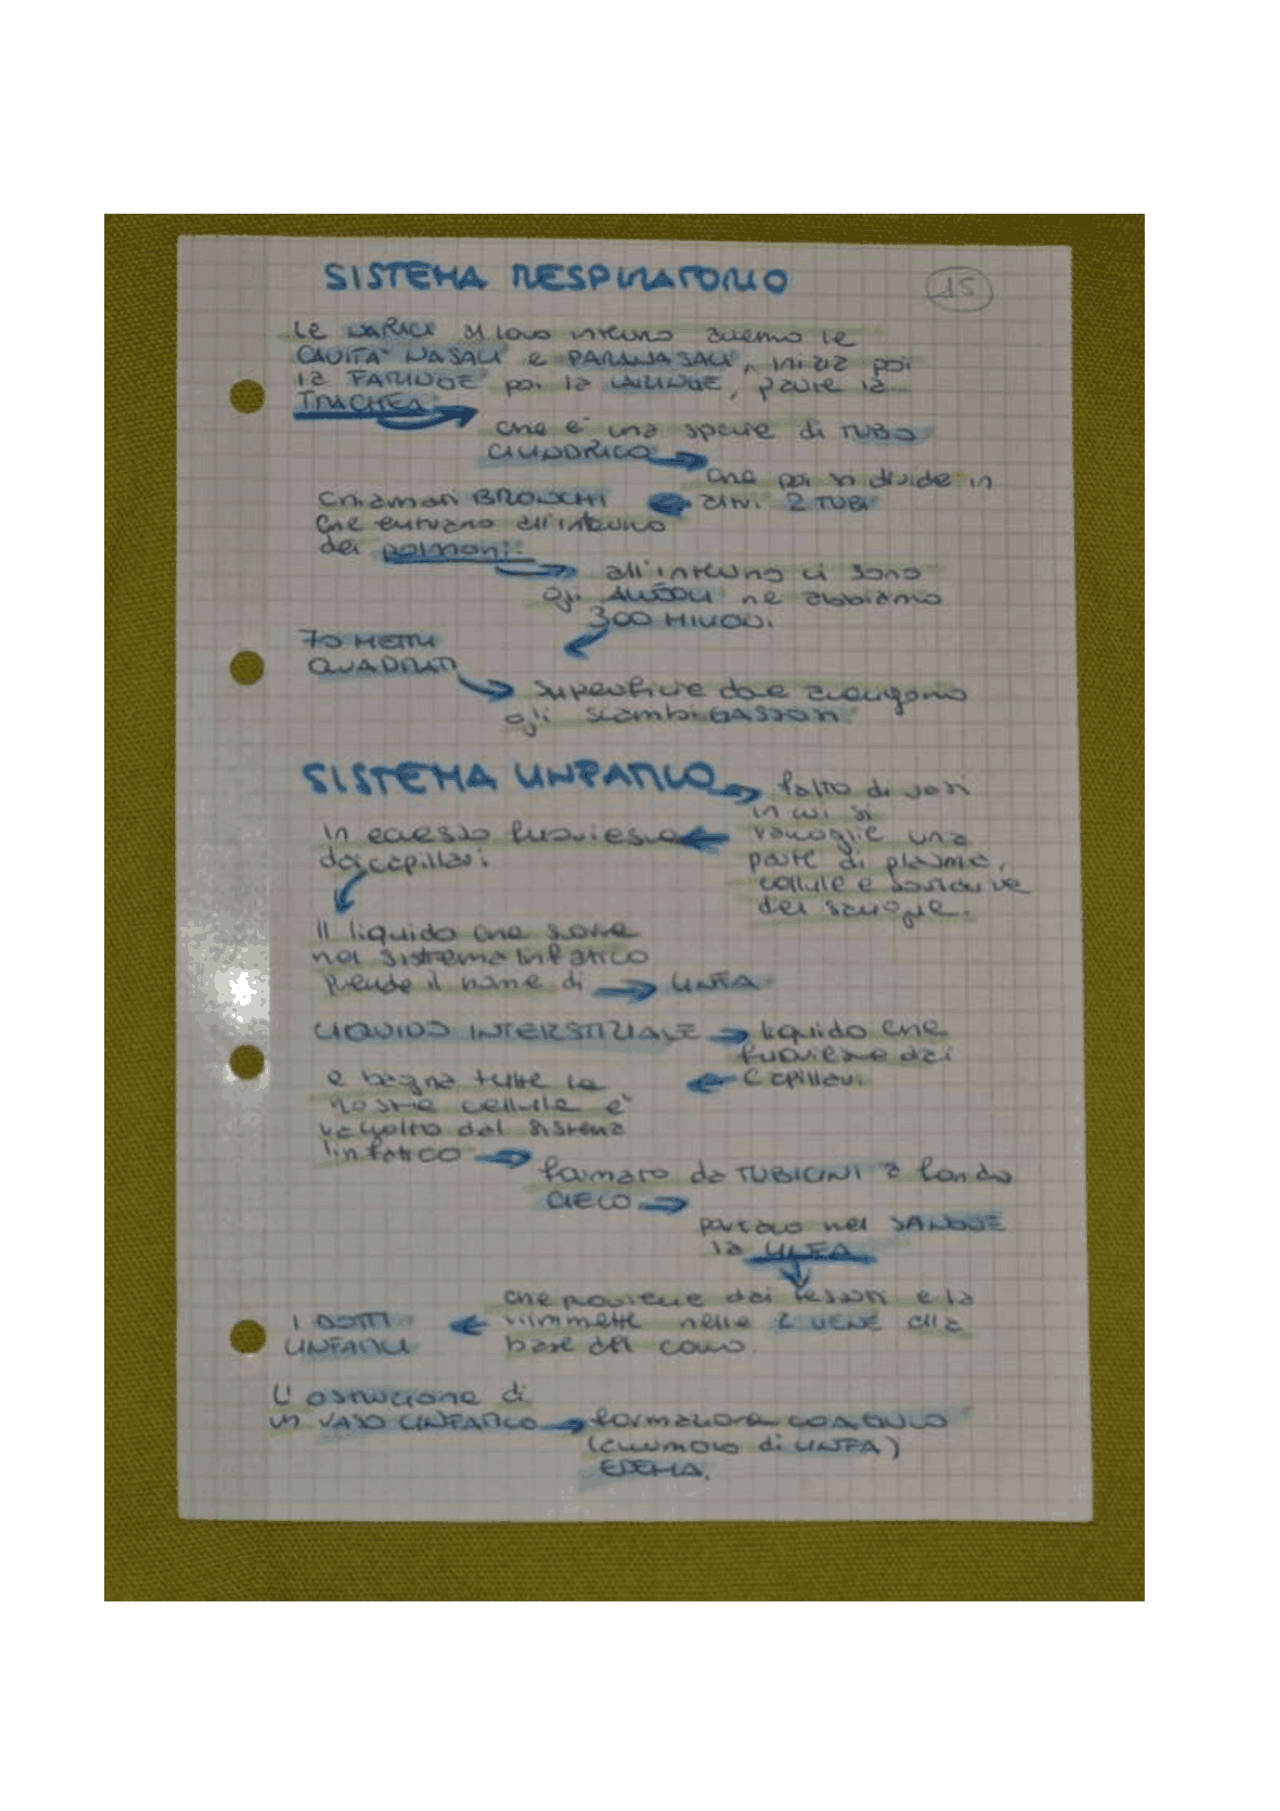 SISTEMA RESPIRATORIO
15
Le NARICI al loro interno avremo le
CAVITA' NASALI e PARANASALI, inizia poi
la FARINGE poi la LARINGE, parte la
TRACHEA
che è una specie di TUBO
CILINDRICO
che poi si divide in
altri 2 TUBI
chiamati BRONCHI
che entrano all'interno
dei polmoni.
all'interno ci sono
gli ALVEOLI ne abbiamo
300 MILIONI.
70 METRI
QUADRATI
superficie dove avvengono
gli scambi GASSOSI.
SISTEMA LINFATICO
fatto di vasi
in cui si
raccoglie una
parte di plasma,
cellule e sostanze
del sangue.
in eccesso fuoriesce
dai capillari
Il liquido che scorre
nel sistema linfatico
prende il nome di
LINFA
LIQUIDO INTERSTIZIALE
liquido che
fuoriesce dai
capillari
e bagna tutte le
nostre cellule e'
raccolto dal sistema
linfatico
formato da TUBICINI a fondo
CIECO
portano nel SANGUE
la LINFA
che proviene dai tessuti e la
rimmette nelle 2 VENE alla
base del collo.
I DOTTI
LINFATICI
L'ostruzione di
un VASO LINFATICO
formazione COAGULO
(accumolo di LINFA)
EDEMA.